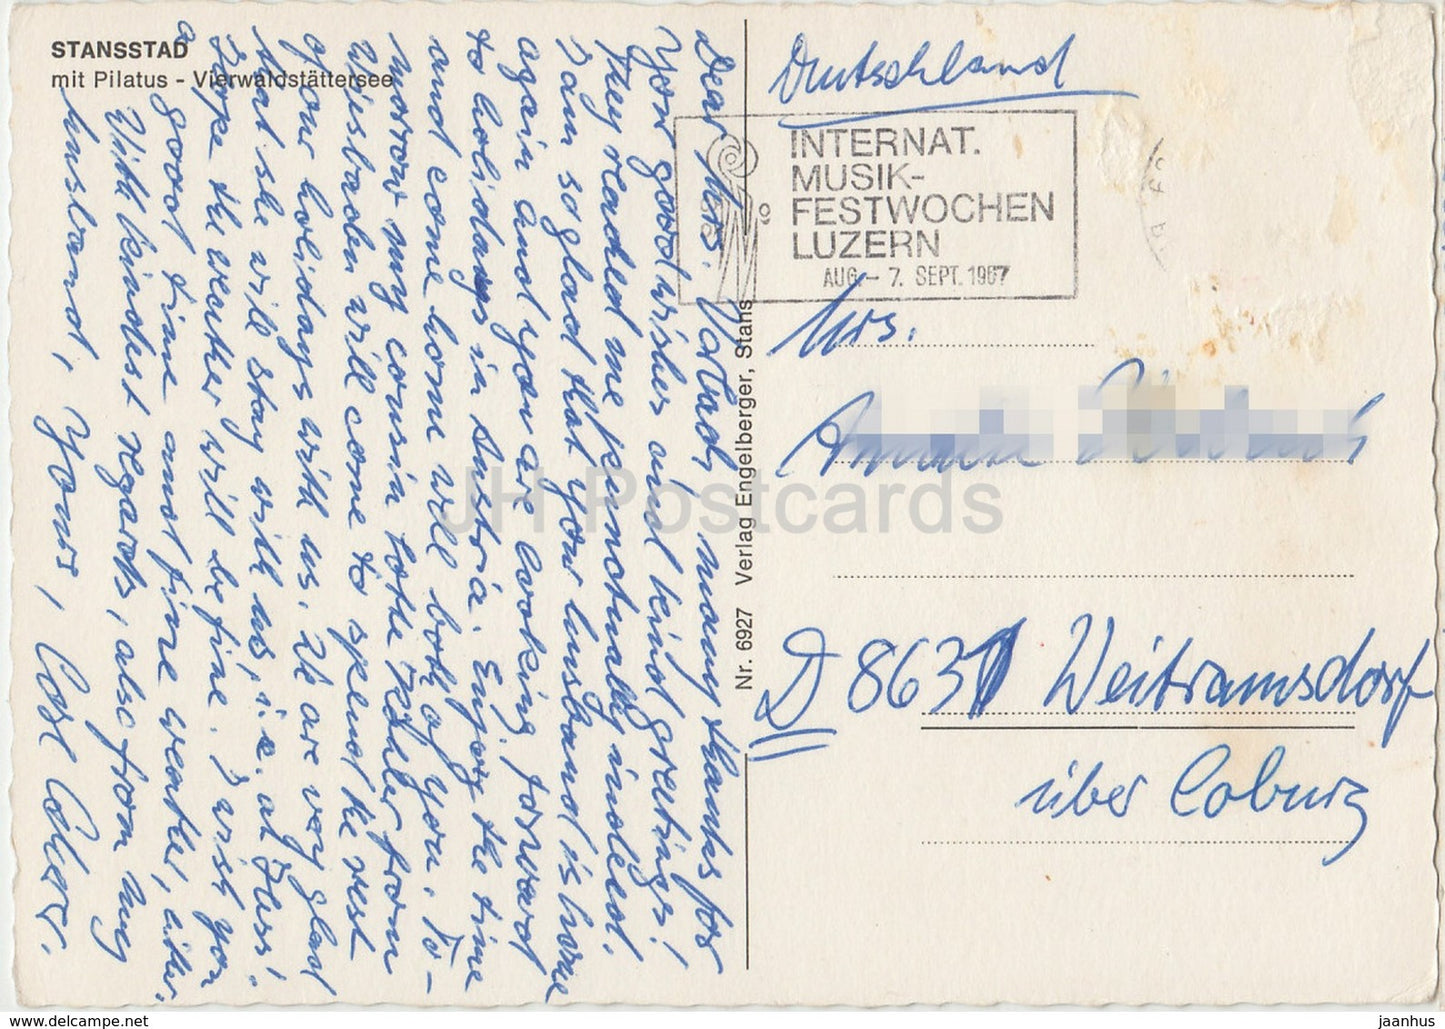 STANSSTAD
mit Pilatus - Vierwaldstättersee
Dear Mrs. many thanks for
your good wishes und kind greetings!
They reached me punctually indeed.
I am so glad that your husband is home
again and you are looking forward
to holidays in Austria. Enjoy the time
and come home well both of you. To-
morrow my cousin Lotte from
Wiesbaden will come to spend the rest
of our holidays with us. We are very glad
that she will stay with us, i.e. at
I hope the weather will be fine. I wish you
a good time and fine weather,
With kindest regards, also from my
husband, Yours,
Nr. 6927 Verlag Engelberger, Stans
Deutschland
INTERNAT.
MUSIK-
FESTWOCHEN
LUZERN
AUG. - 7. SEPT. 1987
Mrs.
D 8631 Weitramsdorf
über Coburg
JH Postcards
www.delcampe.net
jaanhus